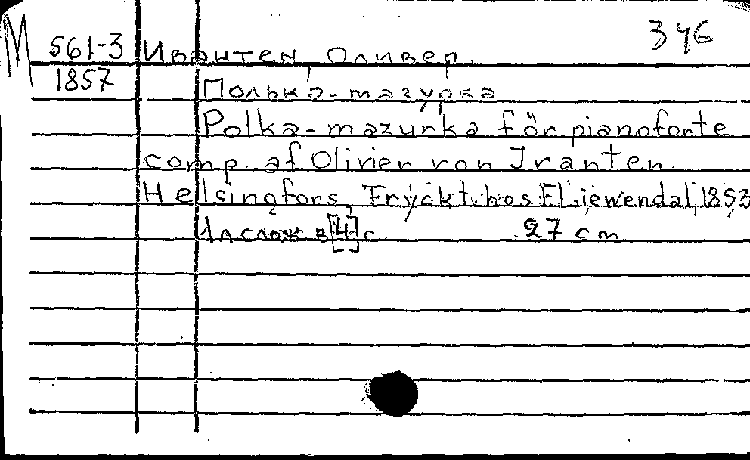 M 561-3 Ивантен, Оливер. 346
1857 Полька-мазурка
Polka-mazurka för pianoforte
comp. af Olivier von Iranten.
Helsingfors, Tryckt hos E. Liewendal, 1853
1 л. слож. в [4] с. 27 cm